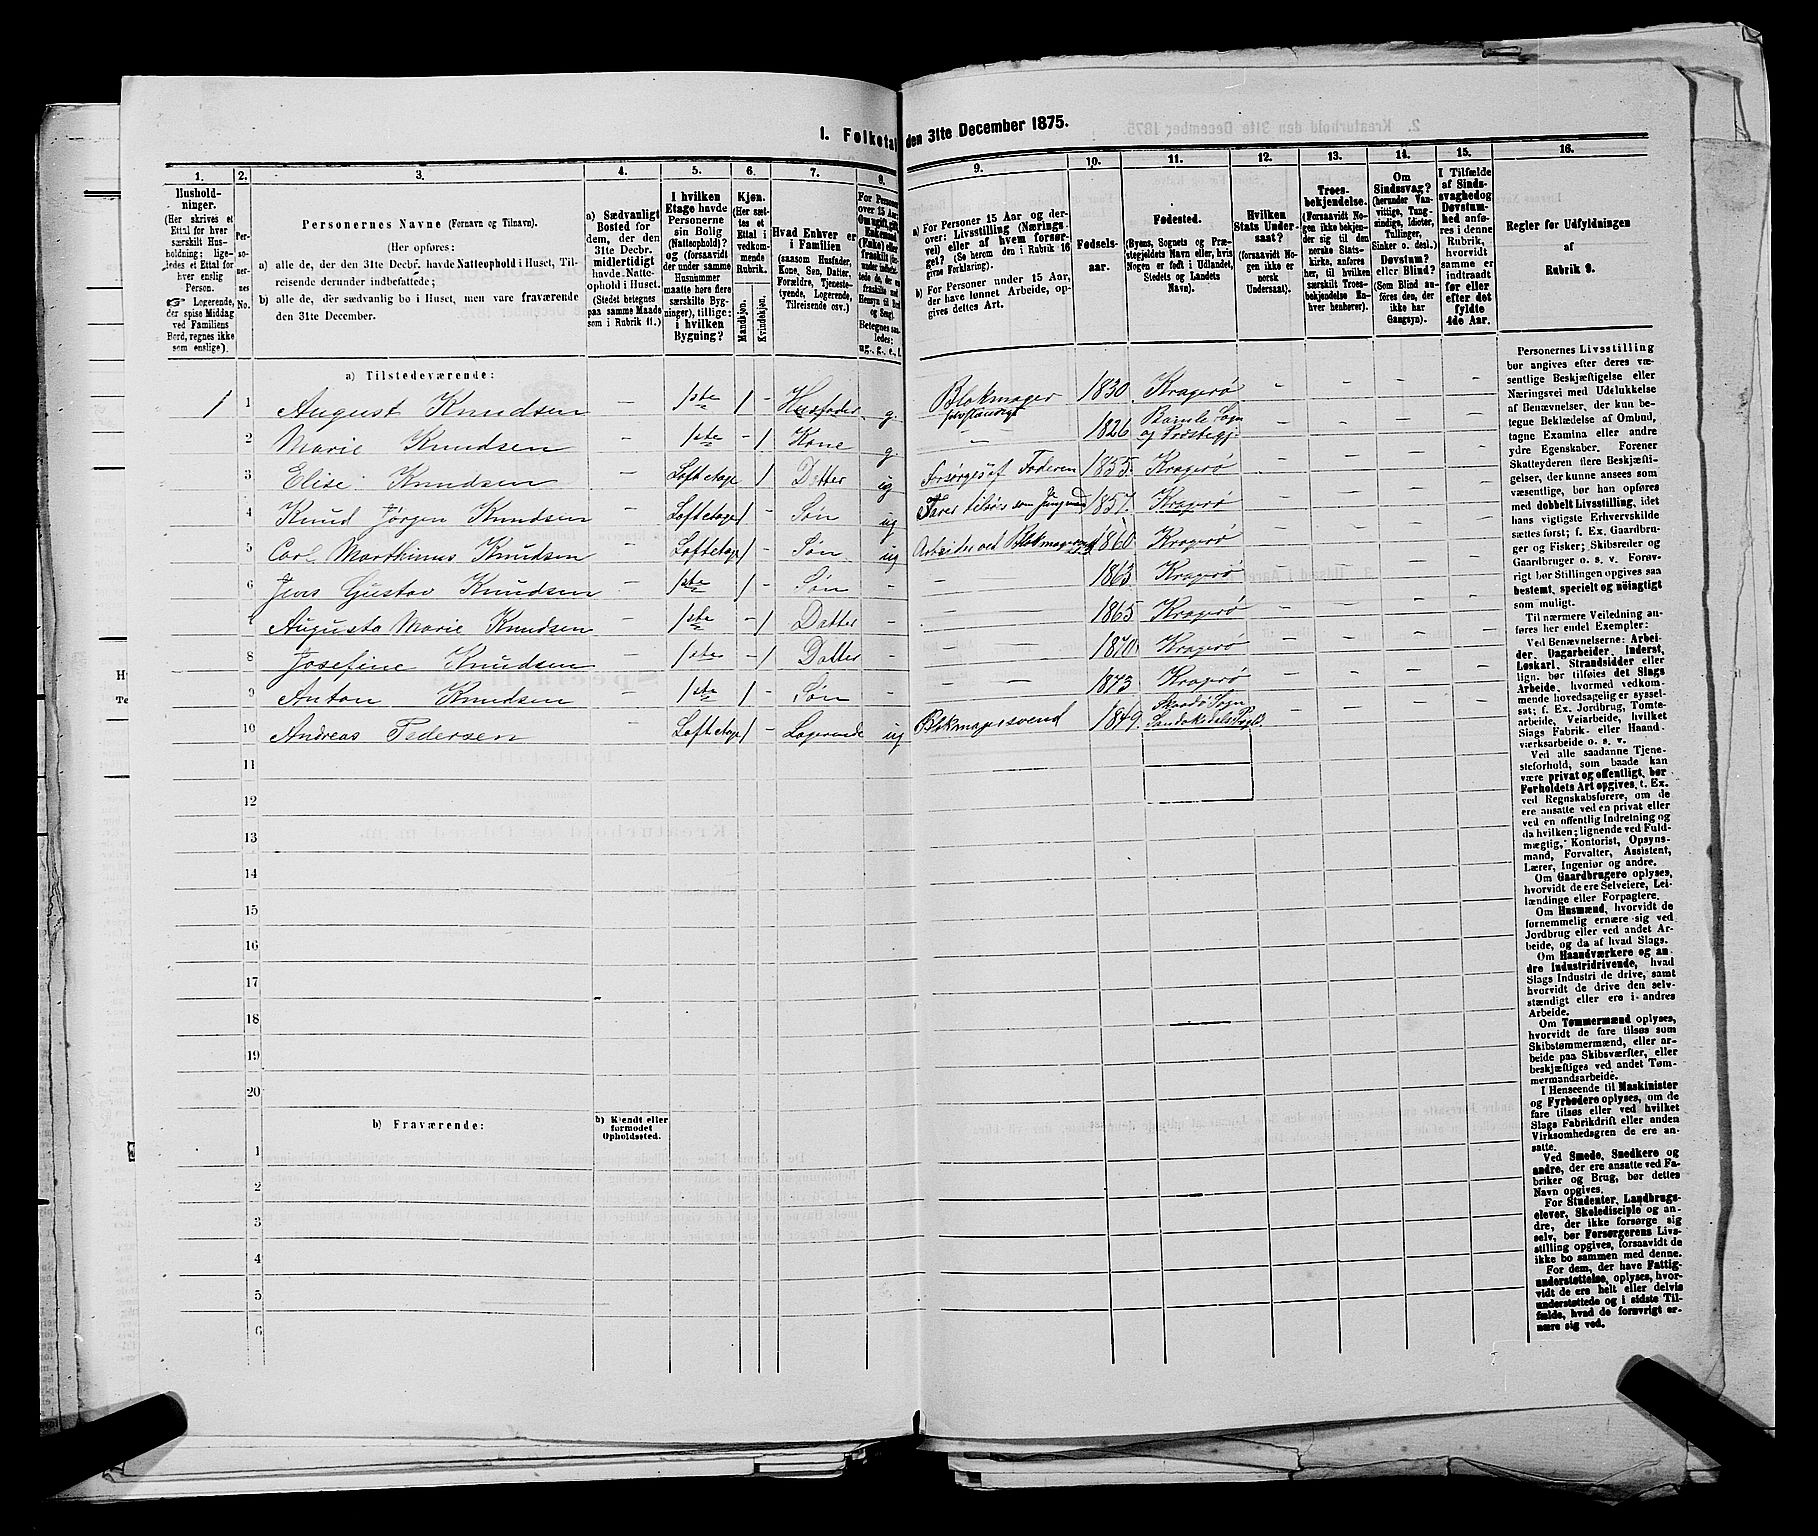 1. Folketal den 31te December 1875.
1. 2. 3. 4. 5. 6. 7. 8. 9. 10. 11. 12. 13. 14. 15. 16.
Hushold-
ninger.
(Her skrives et
Ettal for hver
særskilt Hus-
holdning; lige-
ledes et Ettal for
hver enslig
Person.
Logerende,
der spise Middag
ved Familiens
Bord, regnes ikke
som enslige).
Per-
so-
ner-
nes
No.
Personernes Navne (Fornavn og Tilnavn).
(Her opføres:
a) alle de, der den 31te Decbr. havde Natteophold i Huset, Til-
reisende derunder indbefattede;
b) alle de, der sædvanlig bo i Huset, men vare fraværende
den 31te December.
a) Sædvanligt
Bosted for
dem, der den
31te Decbr.
midlertidigt
havde Natte-
ophold i Huset.
(Stedet betegnes
paa samme Maade
som i Rubrik 11.)
I hvilken
Etage havde
Personerne
sin Bolig
(Natteophold)?
og (forsaavidt
der under samme
Husnummer
maatte høre flere
særskilte Byg-
ninger), tillige:
i hvilken
Bygning?
Kjøn.
(Her sæt-
tes et
Ettal i
vedkom-
mende
Rubrik.
Mandkjøn.
Kvindekjøn.
Hvad Enhver er
i Familien
(saasom Husfader,
Kone, Søn, Datter,
Forældre, Tjeneste-
tyende, Logerende,
Tilreisende osv.)
a) For Personer 15 Aar og der-
over: Livsstilling (Nærings-
vei) eller af hvem forsør-
get? (Se herom den i Rubrik 16
givne Forklaring).
b) For Personer under 15 Aar,
der have lønnet Arbeide, op-
gives dettes Art.
Fødsels-
aar.
Fødested.
(Byens, Sognets og Præ-
stegjeldets Navn eller, hvis
Nogen er født i Udlandet,
Stedets og Landets
Navn).
Hvilken
Stats Under-
saat?
(forsaavidt No-
gen ikke er
norsk
Undersaat).
Troes-
bekjendelse.
(Forsaavidt No-
gen ikke bekjen-
der sig til den
norske Stats-
kirke, anføres
her, til hvilken
særskilt Troes-
bekjendelse En-
hver henhører).
Om
Sindssvag?
(herunder Van-
vittige, Tung-
sindige, Idioter,
Tullinger,
Sinker o. desl.)
Døvstum?
eller Blind?
(Som Blind an-
føres den, der
ikke har
Gangsyn).
I Tilfælde
af Sinds-
svaghed og
Døvstum-
hed anfø-
res i denne
Rubrik,
hvorvidt
samme er
indtraadt
før eller
efter det
fyldte
4de Aar.
Regler for Udfyldningen
af
Rubrik 9.
a) Tilstedeværende:
1 1 August Knudsen — 1ste 1 - Husfader g. Blokmager selvstændigt 1830. Kragerø
2 Marie Knudsen — 1ste - 1 Kone g. — 1826 Bamle Sogn og Præstegj.
3 Elise Knudsen — Loftetage - 1 Datter ug Forsørges af Faderen 1855. Kragerø
4 Knud Jørgen Knudsen — Loftetage 1 - Søn ug Farer tilsøs som Jungmand 1857. Kragerø
5 Carl Marthinus Knudsen — Loftetage 1 - Søn ug 1860 Kragerø
6 Jens Gustav Knudsen — 1ste 1 - Søn - — 1863 Kragerø
7 Augusta Marie Knudsen — 1ste - 1 Datter - — 1865 Kragerø
8 Josefine Knudsen — 1ste - 1 Datter - — 1870 Kragerø
9 Anton Knudsen — 1ste 1 - Søn - — 1873 Kragerø
10 Andreas Pedersen — Loftetage 1 - Logerende ug Blokmagersvend 1849.
11
12
13
14
15
16
17
18
19
20
b) Fraværende:
b) Kjendt eller
formodet
Opholdssted.
1
2
3
4
5
6
Personernes Livsstilling
bør angives efter deres væ-
sentlige Beskjæftigelse eller
Næringsvei med Udelukkelse
af Benævnelser, der kun be-
tegne Beklædelse af Ombud,
tagne Examina eller andre
ydre Egenskaber. Forener
Skatteyderen flere Beskjæfti-
gelser, der kunne ansees som
væsentlige, bør han opføres
med dobbelt Livsstilling, idet
hans vigtigste Erhvervskilde
sættes først; f. Ex. Gaardbru-
ger og Fisker; Skibsreder og
Gaardbruger o. s. v. Forøv-
rigt bør Stillingen opgives saa
bestemt, specielt og nöiagtigt
som muligt.
Til nærmere Veiledning an-
føres her endel Exempler:
Ved Benævnelserne: Arbei-
der, Dagarbeider, Inderst,
Løskarl, Strandsidder eller
lign. bør tilføies det Slags
Arbeide, hvormed vedkom-
mende hovedsagelig er syssel-
sat; f. Ex. Jordbrug, Tomte-
arbeide, Veiarbeide, hvilket
Slags Fabrik- eller Haand-
værksarbeide o. s. v.
Ved alle saadanne Tjene-
steforhold, som baade kan
være privat og offentligt, bør
Forholdets Art opgives, t. Ex.
ved Regnskabsførere, om de
ere ansatte ved en privat eller
ved en offentlig Indretning og
da hvilken; lignende ved Fuld-
mægtig, Kontorist, Opsyns-
mand, Forvalter, Assistent,
Lærer, Ingeniør og andre.
Om Gaardbrugere oplyses,
hvorvidt de ere Selveiere, Lei-
lændinge eller Forpagtere.
Om Husmænd, hvorvidt de
fornemmelig ernære sig ved
Jordbrug eller ved andet Ar-
beide, og da af hvad Slags.
Om Haandværkere og an-
dre Industridrivende, hvad
Slags Industri de drive, samt
hvorvidt de drive den selv-
stændigt eller ere i andres
Arbeide.
Om Tømmermænd oplyses,
hvorvidt de fare tilsøs som
Skibstømmermænd, eller ar-
beide paa Skibsværfter, eller
beskjæftiges ved andet Tøm-
mermandsarbeide.
I Henseende til Maskinister
og Fyrbødere oplyses, om de
fare tilsøs eller ved hvilket
Slags Fabrikdrift eller anden
Virksomhedsgren de ere an-
satte.
Ved Smede, Snedkere og
andre, der ere ansatte ved Fa-
briker og Brug, bør dettes
Navn opgives.
For Studenter, Landbrugs-
elever, Skoledisciple og an-
dre, der ikke forsørge sig
selv, bør Forsørgerens Livs-
stilling opgives, forsaavidt de
ikke bo sammen med denne.
For dem, der have Fattig-
understøttelse, oplyses, hvor-
vidt de ere helt eller delvis
understøttede og i sidste Til-
fælde, hvad de forøvrigt er-
nære sig ved.